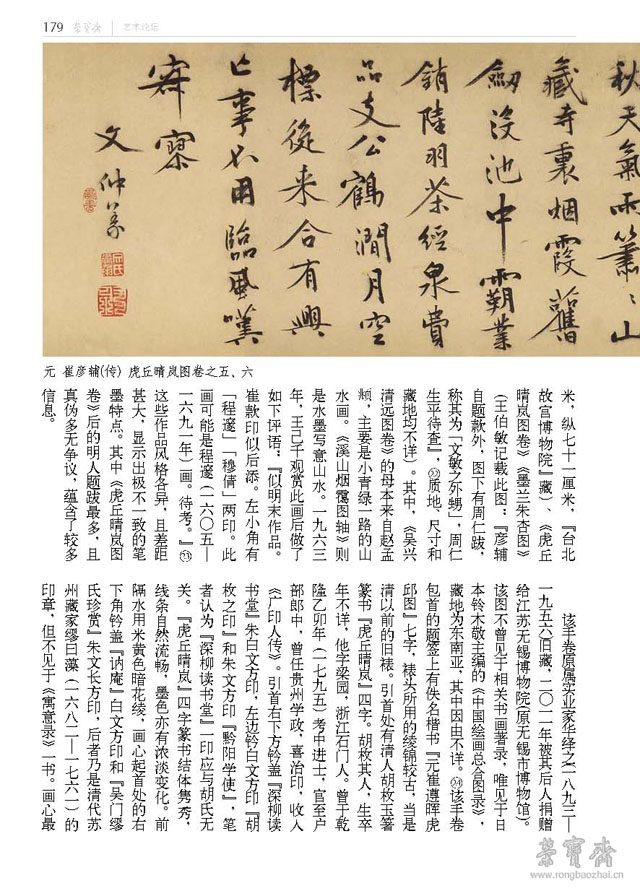 179 荣宝斋 艺术论坛
秋天气雨萧〻山
藏寺里烟霞旧
剑没池中霸业
销陆羽茶经泉费
品支公鹤涧月空
标从来合有兴
亡事不用临风叹
寂寥
文仲义
元 崔彦辅(传) 虎丘晴岚图卷之五、六
米，纵七十一厘米，『台北
故宫博物院』藏）、《虎丘
晴岚图卷》《墨兰朱杏图》
（王伯敏记载此图：『彦辅
自题款外，图下有周仁跋，
称其为「文敏之外甥」，周仁
生平待查』，㉜质地、尺寸和
藏地均不详）。其中，《吴兴
清远图卷》的母本来自赵孟
頫，主要是小青绿一路的山
水画。《溪山烟霭图轴》则
是水墨写意山水。一九六三
年，王己千观赏此画后做了
如下评语：『似明末作品。
崔款印似后添。左小角有
「程邃」「穆倩」两印。此
画可能是程邃（一六〇五—
一六九一年）画。待考。』㉝
这些作品风格各异，且差距
甚大，显示出极不一致的笔
墨特点。其中《虎丘晴岚图
卷》后的明人题跋最多，且
真伪多无争议，蕴含了较多
信息。
该手卷原属实业家华绎之一八九三—
一九五六旧藏，二〇一一年被其后人捐赠
给江苏无锡博物院（原无锡市博物馆）。
该图不曾见于相关书画著录，唯见于日
本铃木敬主编的《中国绘画总合图录》，
藏地为东南亚，其中因由不详。㉞该手卷
包首的题签上有佚名楷书『元崔遵晖虎
邱图』七字，裱头所用的绫锦较古，当是
清以前的旧裱。引首处有清人胡枚玉箸
篆书『虎丘晴岚』四字。胡枚其人，生卒
年不详，他字梁园，浙江石门人。曾于乾
隆乙卯年（一七九五）考中进士，官至户
部郎中，曾任贵州学政，喜治印，收入
《广印人传》。引首右下方钤盖『深柳读
书堂』朱白文方印，左边钤白文方印『胡
枚之印』和朱文方印『黔阳学使』，笔
者认为『深柳读书堂』一印应与胡氏无
关。『虎丘晴岚』四字篆书结体隽秀，
线条自然流畅，墨色亦有浓淡变化。前
隔水用米黄色暗花绫，画心起首处的右
下角钤盖『讷庵』白文方印和『吴门缪
氏珍赏』朱文长方印，后者乃是清代苏
州藏家缪曰藻（一六八二—一七六一）的
印章，但不见于《寓意录》一书。画心最
荣宝斋
www.rongbaozhai.cn